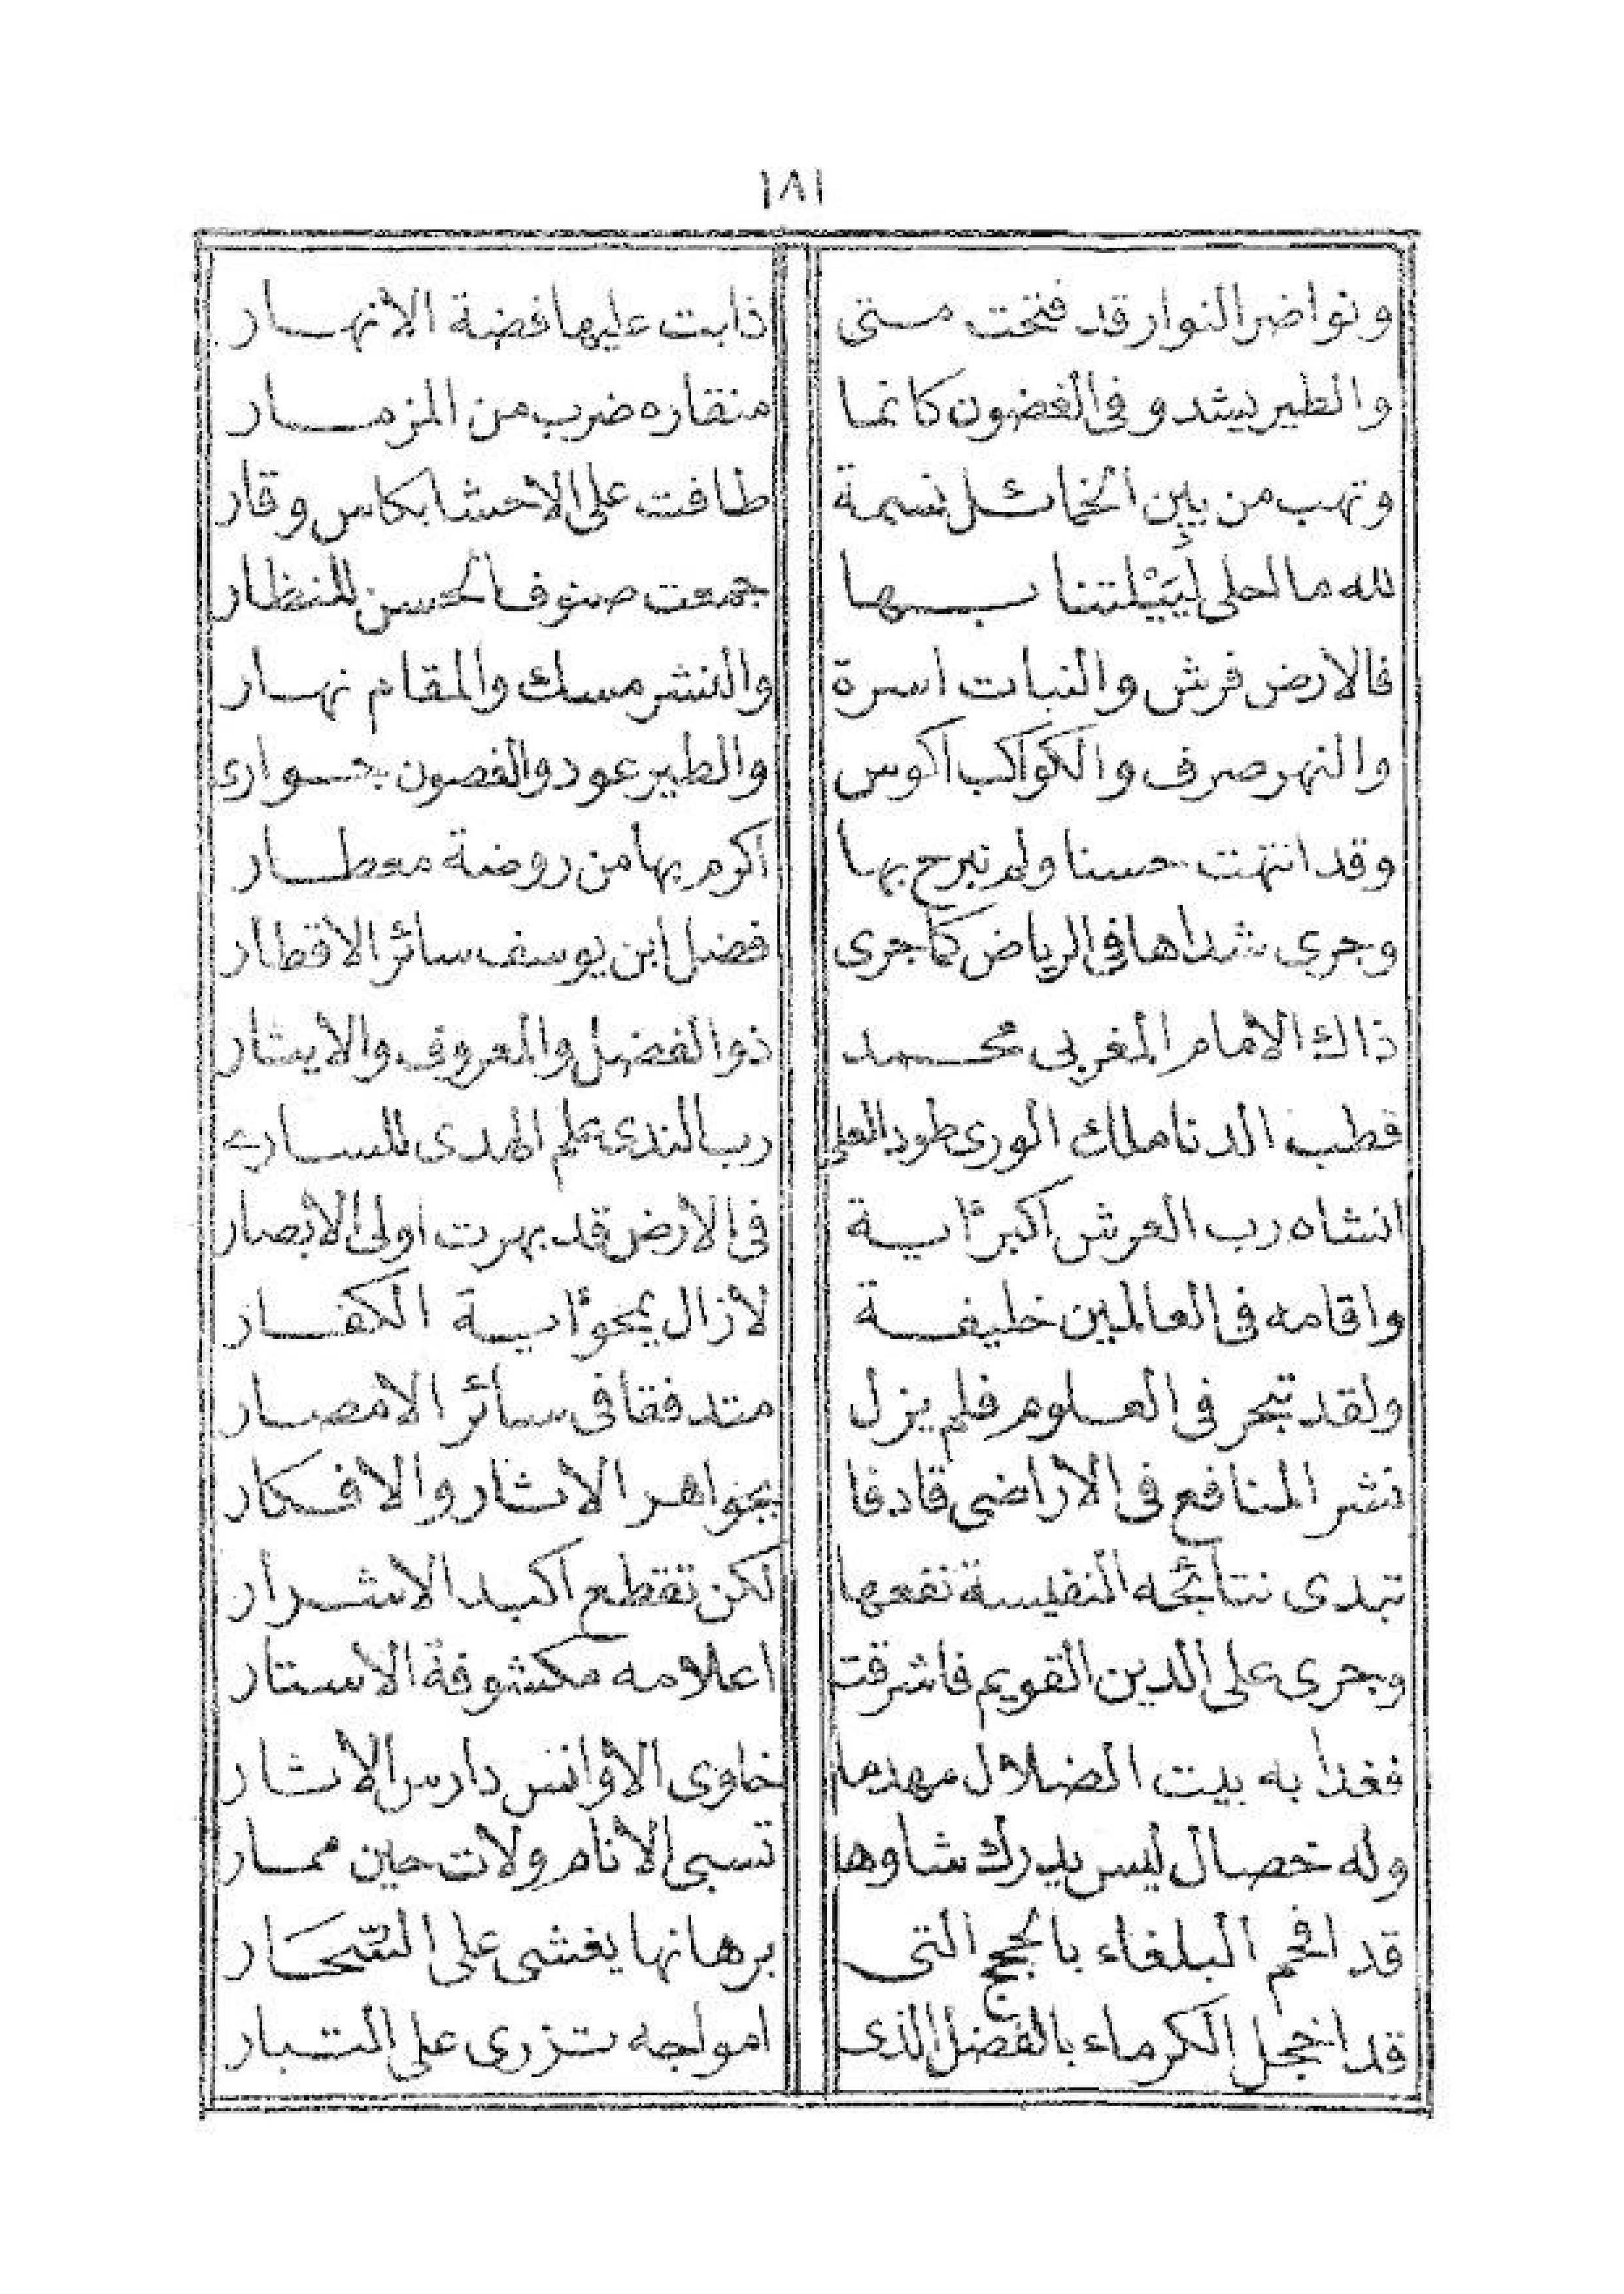 ١٨١
ونواضر النوار قد فتحت متى ذابت عليها فضة الانهار
والطير يشدو فى الغضون كانما منقاره ضرب من المزمار
وتهب من بين الخمائل نسمة طافت على الاحشا بكاس وقار
لله ما احلى لييلتنا بها جمعت صنوف الحسن للنظار
فالارض فرش والنبات اسرة والنشر مسك والمقام نهار
والنهر صرف والكواكب اكوس والطير عود والغصون جوارى
وقد انتهت حسنا ولم نبرح بها اكرم بها من روضة معطار
وجرى شداها فى الرياض كما جرى فضل ابن يوسف سائر الاقطار
ذاك الامام المغربى محمد ذو الفضل والمعروف والايثار
قطب الدنا ملك الورى طود العلى رب الندى علم الهدى للسارى
انشاه رب العرش اكبر ءاية فى الارض قد بهرت اولى الابصار
واقامه فى العالمين خليفة لازال يمحو ءاية الكفار
ولقد تبحر فى العلوم فلم يزل متدفقا فى سائر الامصار
نشر المنافع فى الاراضى قادفا بجواهر الاثار والافكار
تبدى نتائجه النفيسة نفعها لكن تقطع اكبد الاشرار
وجرى على الدين القويم فاشرقت اعلامه مكشوفة الاستار
فغدا به بيت الضلال مهدما خاوى الاوانس دارس الاثار
وله خصال ليس يدرك شاوها تسبى الانام ولات حين ممار
قد افحم البلغاء بالحجج التى برهانها يغشى على السّحَار
قد اخجل الكرماء بالفضل الذى امواجه تزرى على التبار